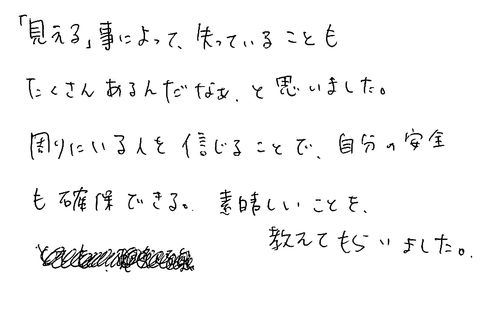 「見える」事によって、失っていることも
たくさんあるんだなぁ、と思いました。
周りにいる人を信じることで、自分の安全
も確保できる。素晴しいことを、
教えてもらいました。